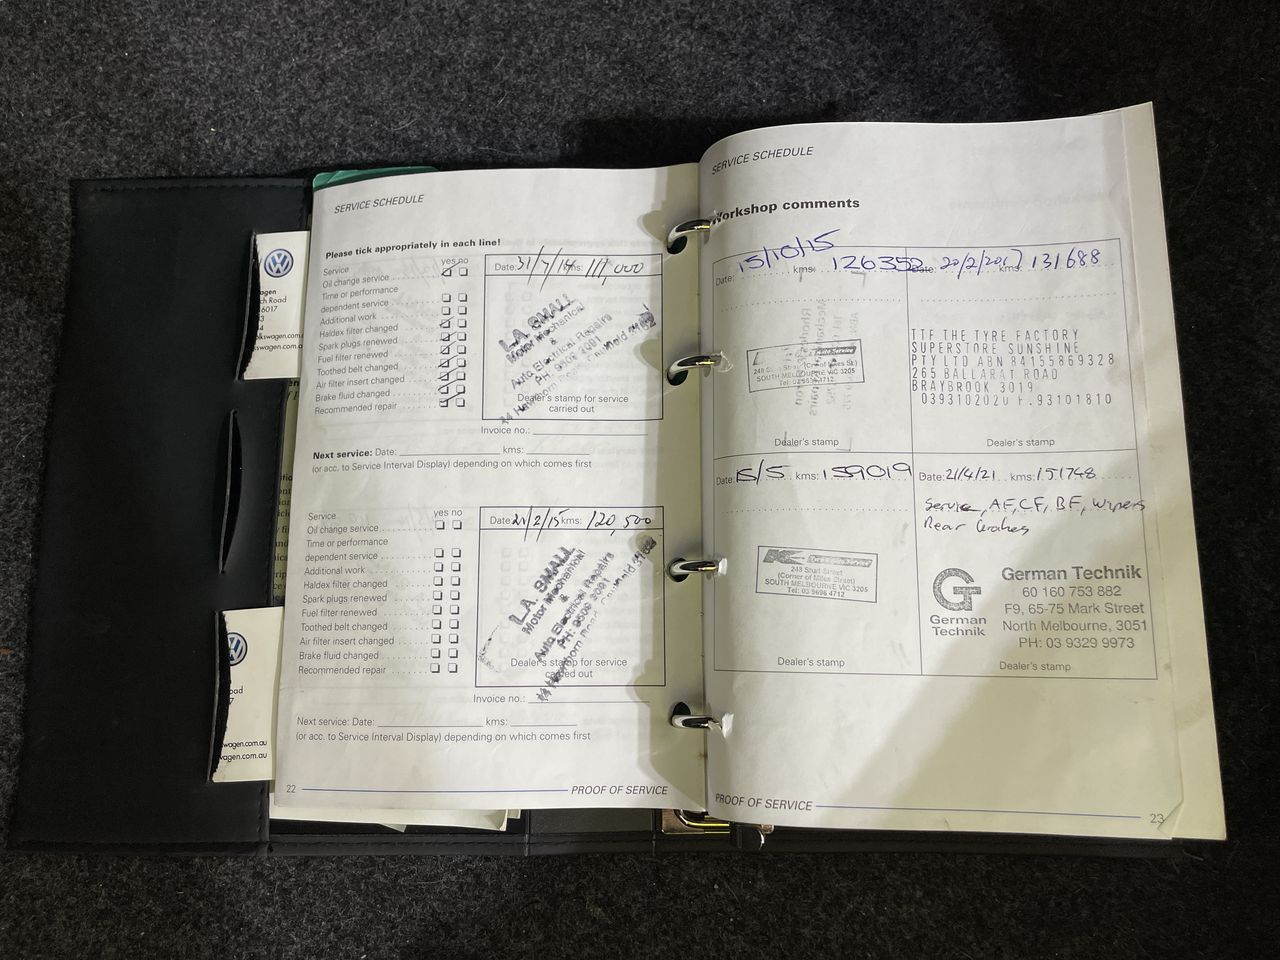 agen
ch Road
6017
3
4
lkswagen.com.au
swagen.com.a
oad
7
wagen.com.au
agen.com.au
SERVICE SCHEDULE
Please tick appropriately in each line!
yes no
Service
Oil change service
Time or performance
dependent service
Additional work
Haldex filter changed
Spark plugs renewed
Fuel filter renewed
Toothed belt changed
Air filter insert changed
Brake fluid changed
Recommended repair
Date: 31/7/14 kms: 111,000
L.A. SMALL
Motor Mechanical
&
Auto Electrical Repairs
PH: 9509 3091
Caulfield 3162
Dealer's stamp for service
carried out
Invoice no.:
Next service: Date: kms:
(or acc. to Service Interval Display) depending on which comes first
yes no
Service
Oil change service
Time or performance
dependent service
Additional work
Haldex filter changed
Spark plugs renewed
Fuel filter renewed
Toothed belt changed
Air filter insert changed
Brake fluid changed
Recommended repair
Date: 21/2/15 kms: 120,500
L.A. SMALL
Motor Mechanical
&
Auto Electrical Repairs
PH: 9509 3091
Hawthorn Road, Caulfield 3162
Dealer's stamp for service
carried out
Invoice no.:
Next service: Date: kms:
(or acc. to Service Interval Display) depending on which comes first
22
PROOF OF SERVICE
SERVICE SCHEDULE
Workshop comments
Date: 15/10/15 kms: 126352
248 Sturt Street (Corner Miles St.)
SOUTH MELBOURNE VIC 3205
Tel: 03 9696 4712
Dealer's stamp
Date: 20/2/2017 kms: 131688
TTF THE TYRE FACTORY
SUPERSTORE SUNSHINE
PTY LTD ABN 84155869328
265 BALLARAT ROAD
BRAYBROOK 3019
0393102020 F.93101810
Dealer's stamp
Date: 15/5 kms: 159019
248 Sturt Street
(Corner of Miles Street)
SOUTH MELBOURNE VIC 3205
Tel: 03 9696 4712
Dealer's stamp
Date: 21/4/21 kms: 151748
Service, AF, CF, BF, Wipers
Rear Brakes
GT
German
Technik
German Technik
60 160 753 882
F9, 65-75 Mark Street
North Melbourne, 3051
PH: 03 9329 9973
Dealer's stamp
PROOF OF SERVICE
23